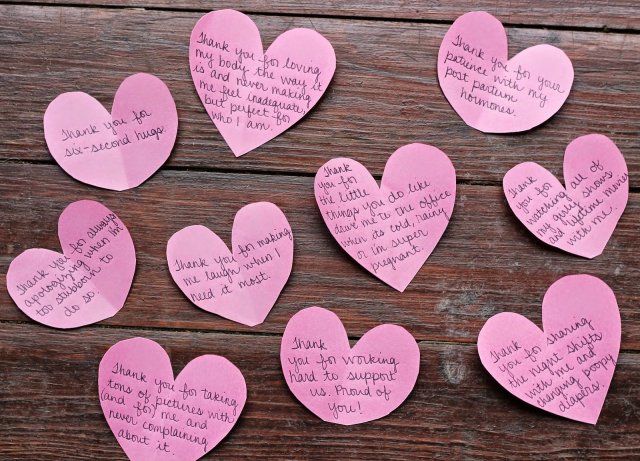 Thank you for loving
my body the way it
is and never making
me feel inadequate,
but perfect for
who I am.
Thank you for your
patience with my
post partum
hormones.
Thank you for
six-second hugs.
Thank
you for
the little
things you do like
drive me to the office
when its cold, rainy
or im super
pregnant.
Thank
you for
watching all of
my girly shows
and lifetime movies
with me.
Thank you for always
apologizing when I'm
too stubborn to
do so.
Thank you for making
me laugh when I
need it most.
Thank
you for working
hard to support
us. Proud of
you!
Thank
you for sharing
the night shifts
with me and
changing poopy
diapers.
Thank you for taking
tons of pictures with
(and for) me and
never complaining
about it.